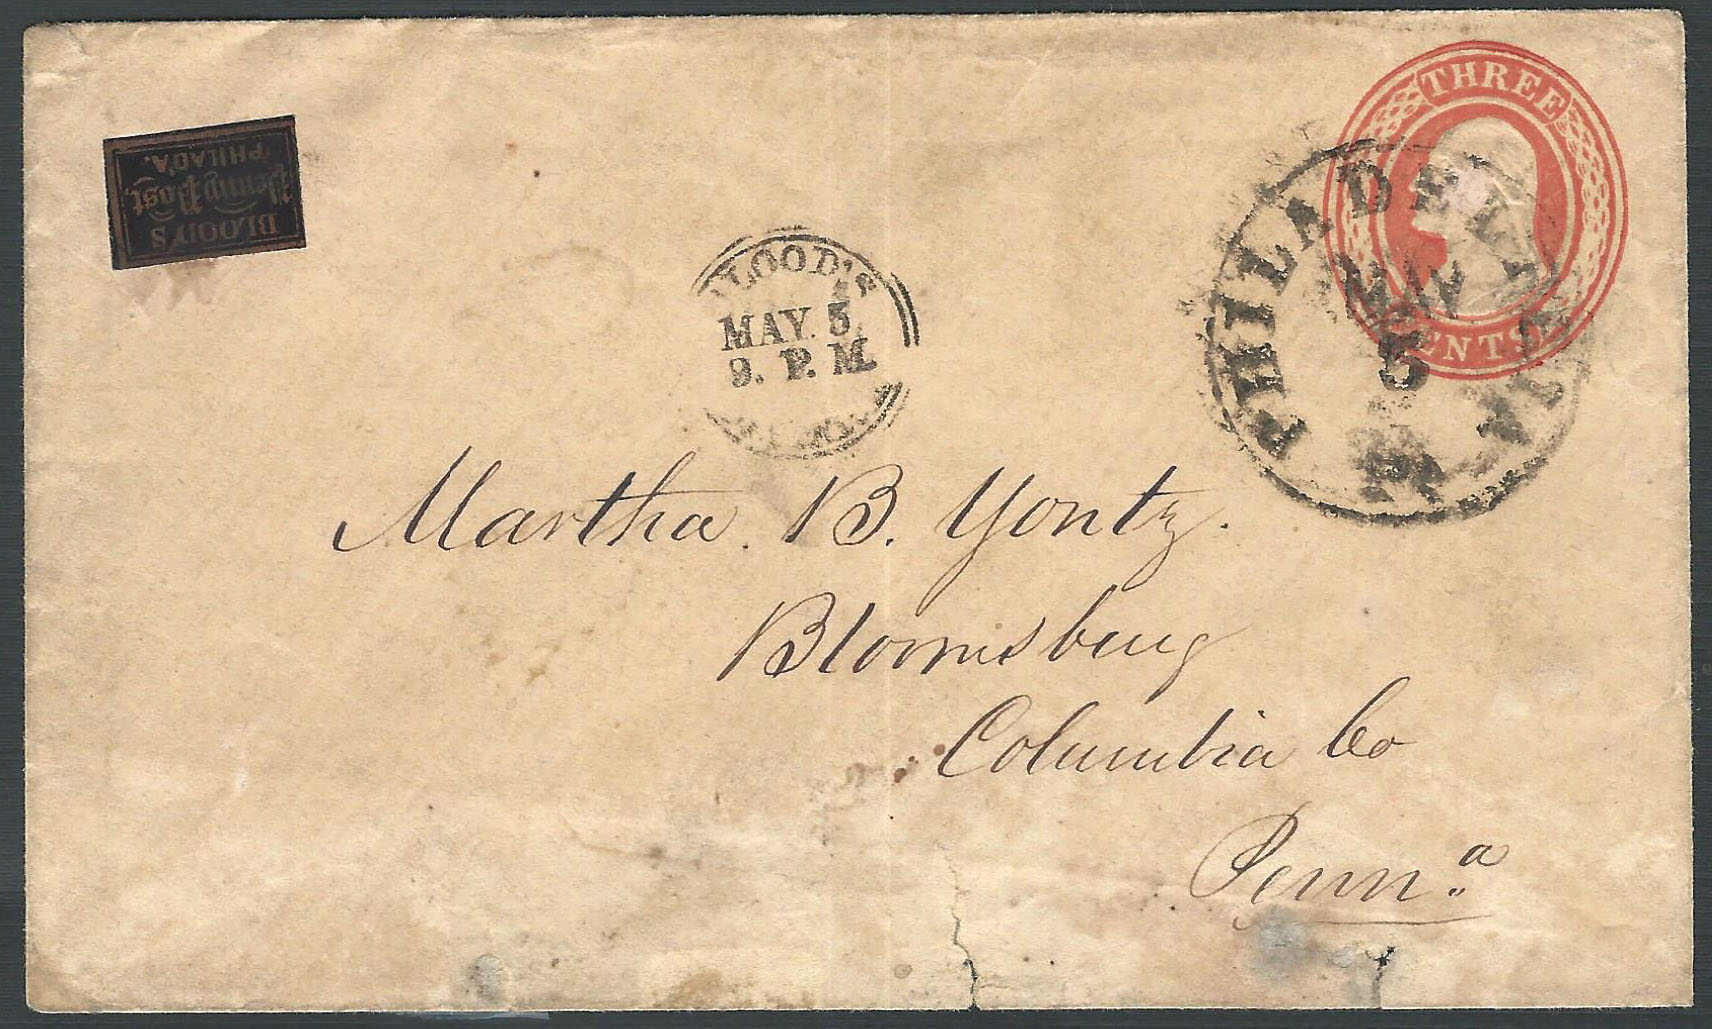 BLOOD'S
Penny Post,
PHILAD'A.
THREE
CENTS
PHILADELPHIA
MAY
5
LOOD'S
MAY. 5.
9. P. M.
Martha B. Yontz.
Bloomsburg
Columbia Co
Penn.a